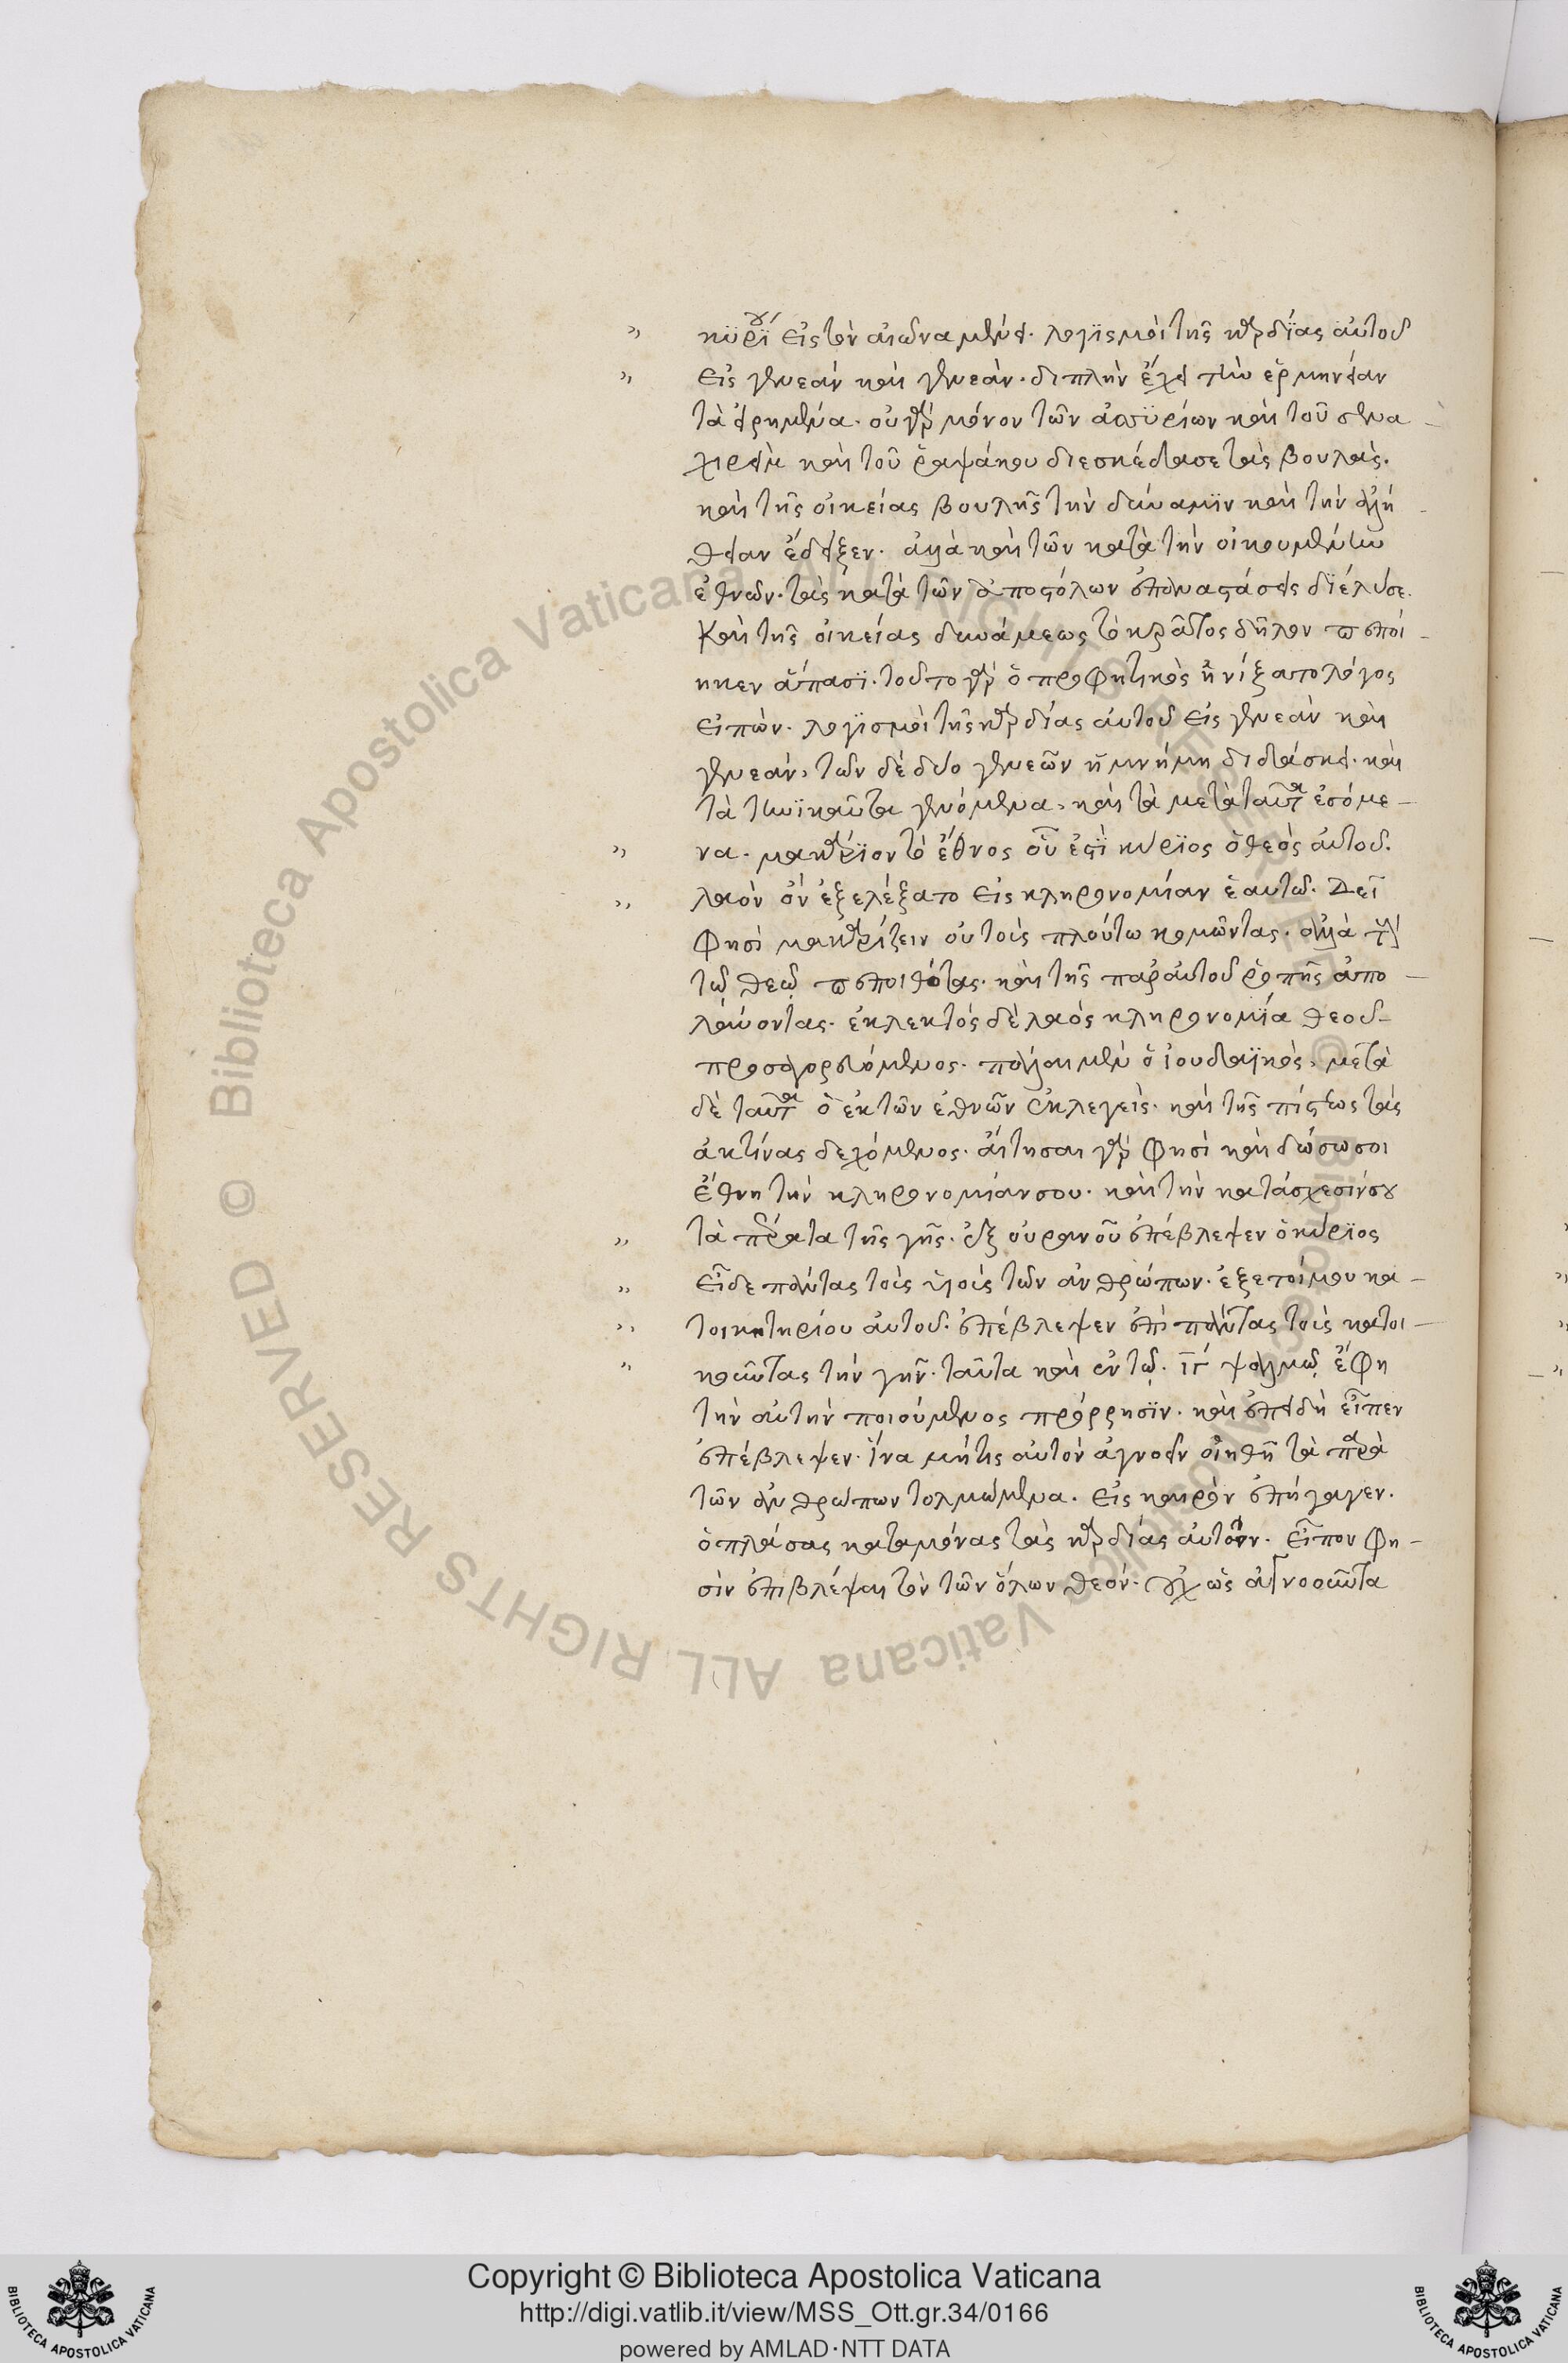 κϋρίου εἰς τὸν αἰῶνα μένει. λογϊσμοὶ τῆς καρδΐας αὐτοῦ
εἰς γενεὰν καὶ γενεάν. διπλὴν ἔχει τὴν ἑρμηνείαν
τὰ εἰρημένα. οὐ γὰρ μόνον τῶν ἀσϋρίων καὶ τοῦ σενα
χιρεὶμ καὶ τοῦ ῥαψάκου διεσκέδασε τὰς βουλὰς.
καὶ τῆς οἰκείας βουλῆς τὴν δύναμϊν καὶ τὴν ἀλή
θειαν ἔδειξεν. ἀλλὰ καὶ τῶν κατὰ τὴν οἰκουμένην
ἐθνῶν. τὰς κατὰ τῶν ἀποστόλων ἐπαναστάσεις διέλυσε.
καὶ τῆς οἰκείας δυνάμεως τὸ κρᾶτος δῆλον πεποί
ηκεν ἅπασϊ. τοῦτο γὰρ ὁ προφητικὸς ἠνίξατο λόγος
εἰπὼν. λογϊσμοὶ τῆς καρδίας αὐτοῦ εἰς γενεὰν καὶ
γενεάν, τῶν δὲ δύο γενεῶν ἡ μνήμη διδάσκει. καὶ
τὰ τηνϊκαῦτα γενόμενα, καὶ τὰ μετὰ ταῦτα ἐσόμε
να. μακάρϊον τὸ ἔθνος οὗ ἐστϊ κύρϊος ὁ θεὸς αὐτοῦ.
λαὸν ὃν ἐξελέξατο εἰς κληρονομίαν ἑαυτῶ. Δεῖ
φησὶ μακαρίζειν οὐ τοὺς πλούτω κομῶντας. ἀλλὰ τοὺς
τῷ θεῷ πεποιθότας. καὶ τῆς παρ αὐτοῦ ῥοπῆς ἀπο
λαύοντας. ἐκλεκτὸς δὲ λαὸς κληρονομΐα θεοῦ
προσαγορευόμενος. πάλαι μὲν ὁ ἰουδαϊκὸς, μετὰ
δὲ ταῦτα ὁ ἐκ τῶν ἐθνῶν ἐκλεγεὶς. καὶ τῆς πίστεως τὰς
ἀκτίνας δεχόμενος. αἴτησαι γὰρ φησὶ καὶ δώσω σοι
ἔθνη τὴν κληρονομίαν σου. καὶ τὴν κατάσχεσίν σου
τὰ πέρατα τῆς γῆς. ἐξ οὐρανοῦ ἐπέβλεψεν ὁ κύρϊος
εἶδε πάντας τοὺς υἱοὺς τῶν ἀνθρώπων. ἐξ ἑτοίμου κα
τοικητηρίου αὐτοῦ. ἐπέβλεψεν ἐπὶ πάντας τοὺς κατοι
κοῦντας τὴν γῆν. ταῦτα καὶ ἐν τῷ. ιγ ψαλμῷ ἔφη
τὴν αὐτὴν ποιούμενος πρόρρησϊν. καὶ ἐπειδὴ εἶπεν
ἐπέβλεψεν. ἵνα μήτις αὐτὸν ἀγνοεῖν οἰηθῆ τὰ παρὰ
τῶν ἀνθρώπων τολμώμενα. εἰς καιρὸν ἐπήγαγεν.
ὁ πλάσας καταμόνας τὰς καρδίας αὐτῶν. εἶπον φη
σὶν ἐπιβλέψαι τὸν τῶν ὅλων θεόν. οὐχ ὡς ἀγνοοῦντα
Copyright © Biblioteca Apostolica Vaticana
http://digi.vatlib.it/view/MSS_Ott.gr.34/0166
powered by AMLAD·NTT DATA
BIBLIOTECA APOSTOLICA VATICANA
BIBLIOTECA APOSTOLICA VATICANA
© Biblioteca Apostolica Vaticana ALL RIGHTS RESERVED
© Biblioteca Apostolica Vaticana ALL RIGHTS RESERVED